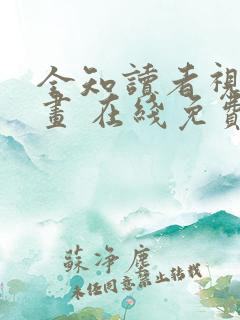 全知讀者視
畫 在綫免費
蘇净塵
未经同意禁止转载